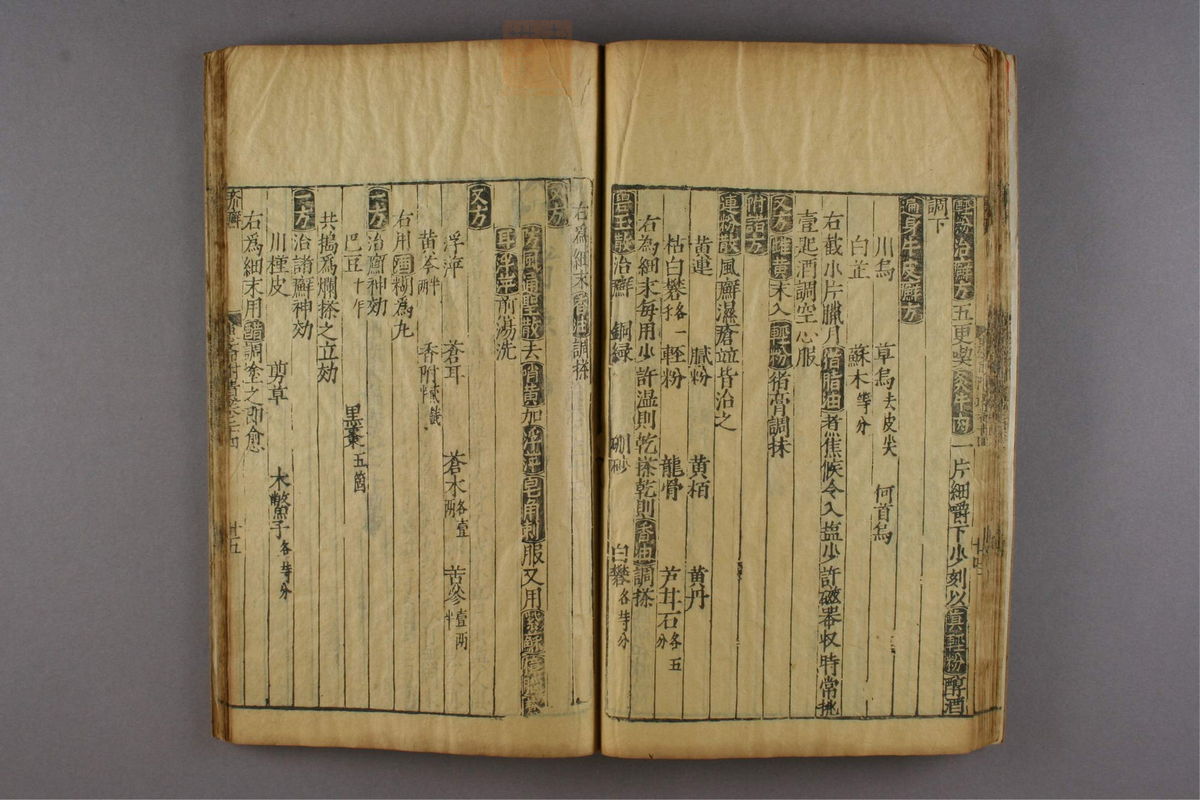 輕粉治癬方五更喫炙牛肉一片細嚼下少刻以真輕粉醇酒
調下
遍身牛皮癬方
川烏 草烏去皮尖 何首烏
白芷 蘇木等分
右截小片臘月猪脂油者焦候令入塩少許磁器収時常挑
壹匙酒調空心服
又方雄黄末入輕粉猪膏調抹
附諸方
連粉散風癬濕瘡並皆治之
黄連 膩粉 黄栢 黄丹
枯白礬各一 輊粉 龍骨 芦甘石各五分
右為細末每用少許温則乾搽乾則香油調搽
玉散治癬 銅緑 硇砂 白礬各等分
右為細末香油調搽
又方
防風通聖散去硝黄加浮萍皂角刺服又用
耳浮萍前湯洗
又方
浮萍 蒼耳 蒼术各壹兩 苦參壹兩半
黄芩半兩 香附
右用酒糊為丸
一方治癬神効
巴豆十作 黒棗五箇
共搗為爛搽之立効
一方治諸癬神効
川槿皮 剪草 木鱉子各等分
右為細末用醋調塗之即愈
疥癬
廿五